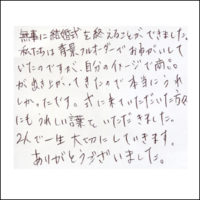 無事に結婚式を終えることができました。
私たちは背景フルオーダーでお願いし
ていたのですが、自分のイメージで商品
が出き上がってきたので本当にうれ
しかったです。式に来ていただいた方々
にもうれしい言葉をいただきました。
2人で一生大切にしていきます。
ありがとうございました。